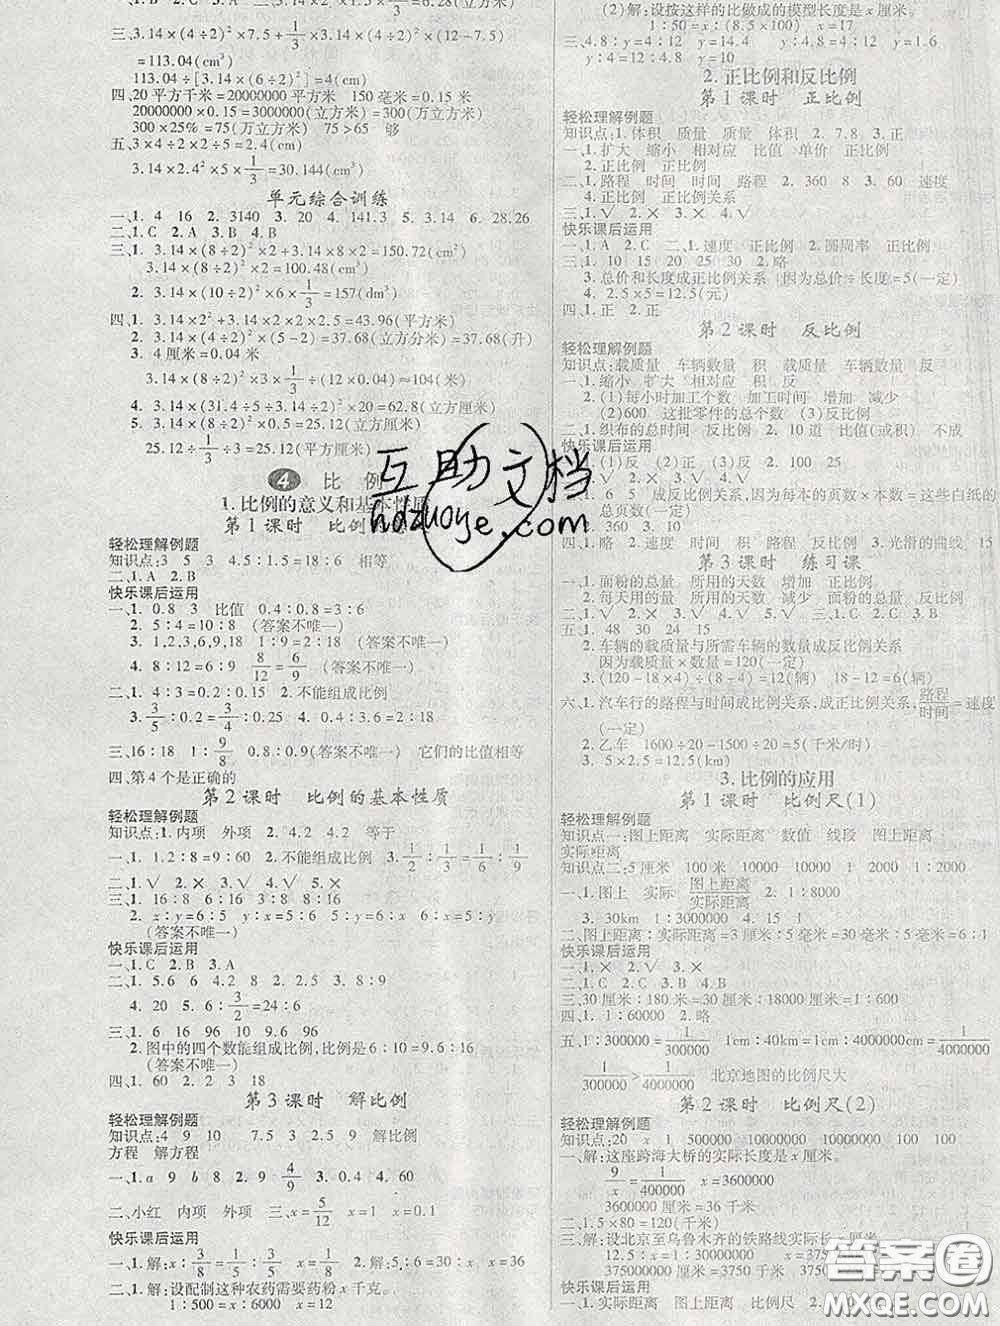 三、3.14×(6÷2)²×7.5+1/3×3.14×(6÷2)²×(12-7.5)
=113.04(cm³)
113.04÷[3.14×(6÷2)²]=4(cm)
四、20平方千米=20000000平方米 150毫米=0.15米
20000000×0.15=3000000(立方米)=300(万立方米)
300×25%=75(万立方米) 75>65 够
五、3×4÷2×2÷5=2.4(cm)
3.14×2.4²×5×1/3=30.144(cm³)
单元综合训练
一、1. 4 16 2. 3140 3. 20 4. 141.3 5. 3.14 6. 28.26
二、1. C 2. A 3. B 4. B
三、1. 3.14×(8÷2)²×2+3.14×8×2=150.72(cm²)
3.14×(8÷2)²×2=100.48(cm³)
2. 3.14×(10÷2)²×6×1/3=157(dm³)
四、1. 3.14×2²+3.14×2×2×2.5=43.96(平方米)
2. 3.14×(4÷2)²×(5-2)=37.68(立方分米)=37.68(升)
3. 4厘米=0.04米
4. 3.14×(31.4÷5÷3.14÷2)²×20=62.8(立方厘米)
25.12÷1/3÷3=25.12(平方厘米)
4 比 例
1.比例的意义和基本性质
第1课时 比例
轻松理解例题
知识点:3 5 3 4.5∶1.5=18∶6 相等
二、1. A 2. B
快乐课后运用
一、1. 0.8 3 比值 0.4∶0.8=3∶6
2. 5∶4=10∶8 (答案不唯一)
3. 1,2,3,6,9,18 1∶9=2∶18 (答案不唯一)
4. 8∶12=6∶9 8/12=6/9 (答案不唯一)
二、1. 4∶3=8∶6 2.不能组成比例
3. 3/5∶0.2=3/4∶0.25 4. 0.3∶0.2=18∶12
三、16∶18 1∶9/8 0.8∶0.9(答案不唯一) 它们的比值相等
四、第4个是正确的
第2课时 比例的基本性质
轻松理解例题
知识点:1.内项 外项 2. 4.2 4.2 等于
一、1. 1.2∶8=9∶60 2.不能组成比例 3. 1/2∶1/3=1/6∶1/9
二、1.√ 2.× 3.× 4.√
三、1. 16∶8 6∶16 3∶18
2. x∶y=6∶5 x∶6=y∶5 y∶x=5∶6 6∶x=5∶y
(答案不唯一)
快乐课后运用
一、1. C 2. B 3. A
二、1. 5.6 6 2. 4 15 3. 8∶9
4. 20 5. 6∶3/2=24∶6
三、1. 6 16 96 10 96
2.图中的四个数能组成比例,比例是6∶10=9.6∶16
(答案不唯一)
四、1. 60 2. 2 3 18
第3课时 解比例
轻松理解例题
知识点:4 9 10 7.5 3 2.5 9 解比例
方程 解方程
一、1. a 9 b 8 2. 9 3. 4/9 4. 0.4
二、小红 内项 外项 三、x=5/12 x=1 x=0.1
快乐课后运用
一、1.解:x∶3/8=1/5∶3/5 x=1/8 2.解:5∶x=30∶6 x=36
二、1.解:设配制这种农药需要药粉x千克。
1∶500=x∶6000 x=12
(2)解:设按这样的比做成的模型长度是x厘米。
1∶50=x∶(8.5×100) x=17
三、4.8∶y=4∶12 y=14.4
y∶4=12∶4.8 y=10
2.正比例和反比例
第1课时 正比例
轻松理解例题
知识点:1.体积 质量 质量 体积 2. 7.8 3.正
一、1.扩大 缩小 相对应 比值 单价 正比例
2.正比例 正比例
二、1.路程 时间 时间 路程 2. 360 8 3. 60 速度
4.正比例 正比例关系
三、1.√ 2.× 3.× 4.√
快乐课后运用
一、1. A 2. C 二、1.速度 正比例 2.圆周率 正比例
三、1. 10 15 20 25 30 2.略
3.总价和长度成正比例关系 因为总价÷长度=5(一定)
4. 2.5×5=12.5(元)
四、1.正 2.正
第2课时 反比例
轻松理解例题
知识点:载质量 车辆数量 积 载质量 车辆数量 反
一、1.缩小 扩大 相对应 积 反
2.(1)每小时加工个数 加工时间 增加 减少
(2)600 这批零件的总个数 (3)反比例
二、1.织布的总时间 反比例 2. 10道 比值(或积) 不成
快乐课后运用
总页数 3. 500 5
四、1.略 2.速度 时间 积 路程 反比例 3.光滑的曲线 15
第3课时 练习课
一、1.面粉的总量 所用的天数 增加 正比例
2.每天用的量 所用的天数 减少 面粉的总量 反比例
五、1. 48 30 24 15
2.车辆的载质量与所需车辆的数量成反比例关系
因为载质量×数量=120(一定)
3.(120-18×5)÷(18÷3)+(18-5)=18(辆)
六、1.汽车行的路程与时间成比例关系,成正比例关系,路程/时间=速度
(一定)
2.乙车 1600÷20-1500÷20=5(千米/时)
3.比例的应用
第1课时 比例尺(1)
轻松理解例题
知识点一:图上距离 实际距离 数值 线段 图上距离
实际距离
知识点二:5厘米 100米 10000 10000 1 2000 1∶2000
一、1.图上 实际 图上距离/实际距离 2. 1∶8000
3. 30km 1∶3000000 4. 15 1
二、图上距离∶实际距离=3厘米∶5毫米=30毫米∶5毫米=6∶1
快乐课后运用
三、30厘米∶180米=30厘米∶18000厘米=1∶600
四、1. 1∶60000 2.略
五、1∶300000=1/300000 1cm∶40km=1cm∶4000000cm=1/4000000
1/300000>1/4000000 北京地图的比例尺大
第2课时 比例尺(2)
轻松理解例题
知识点:20 x 1 500000 10000000 10000000 100 100
一、解:设这座跨海大桥的实际长度是x厘米。
9/x=1/400000 x=3600000
3600000厘米=36千米
二、1. 1.5×80=120(千米)
2.解:设北京至乌鲁木齐的铁路线实际长x厘米。
12.5∶x=1∶30000000 x=375000000
375000000厘米=3750千米
快乐课后运用
一、1.实际距离 图上距离 比例尺
互助文档
hdzuoye.com
答案圈
MXQE.COM